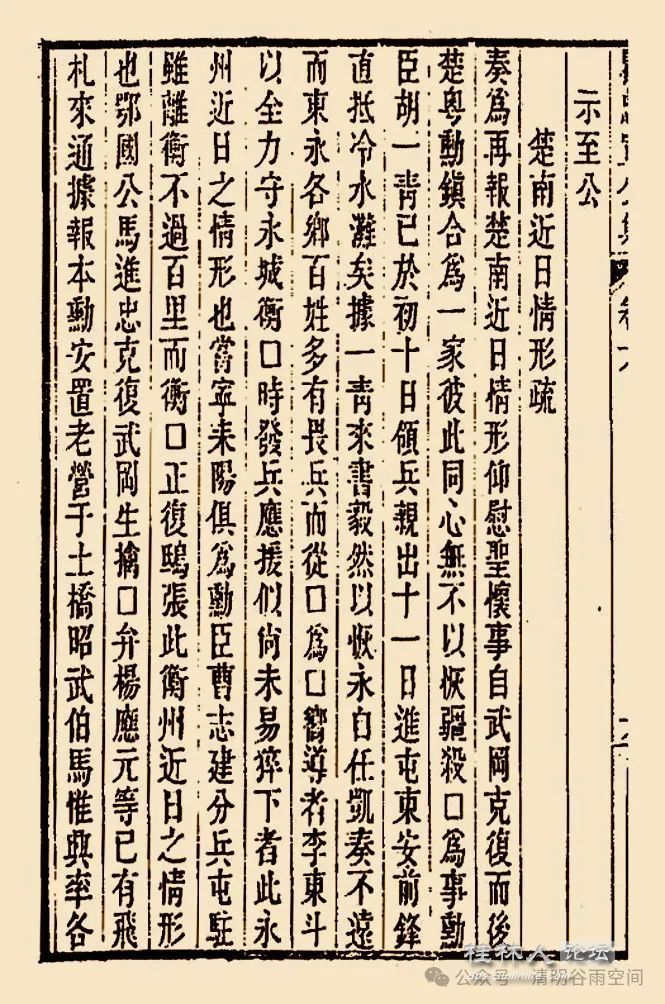 示至公
楚南近日情形疏
奏爲再報楚南近日情形仰慰聖懷事自武岡克復而後
楚粤動鎮合爲一家彼此同心無不以恢疆殺口爲事勳
臣胡一青已於初十日領兵親出十一日進屯東安前鋒
直抵冷水灘矣據一青來書毅然以恢永自任凱奏不遠
而東永各鄉百姓多有畏兵而從口爲口嚮導者李東斗
以全力守永城衡口時發兵應援似尚未易猝下者此永
州近日之情形也當寧耒陽俱爲勳臣曹志建分兵屯駐
雖離衡不過百里而衡口正復鴟張此衡州近日之情形
也鄂國公馬進忠克復武岡生擒口弁楊應元等已有飛
札來通據報本勳安置老營于土橋昭武伯馬惟興率各
桂林人论坛
公众号·清明谷雨空间